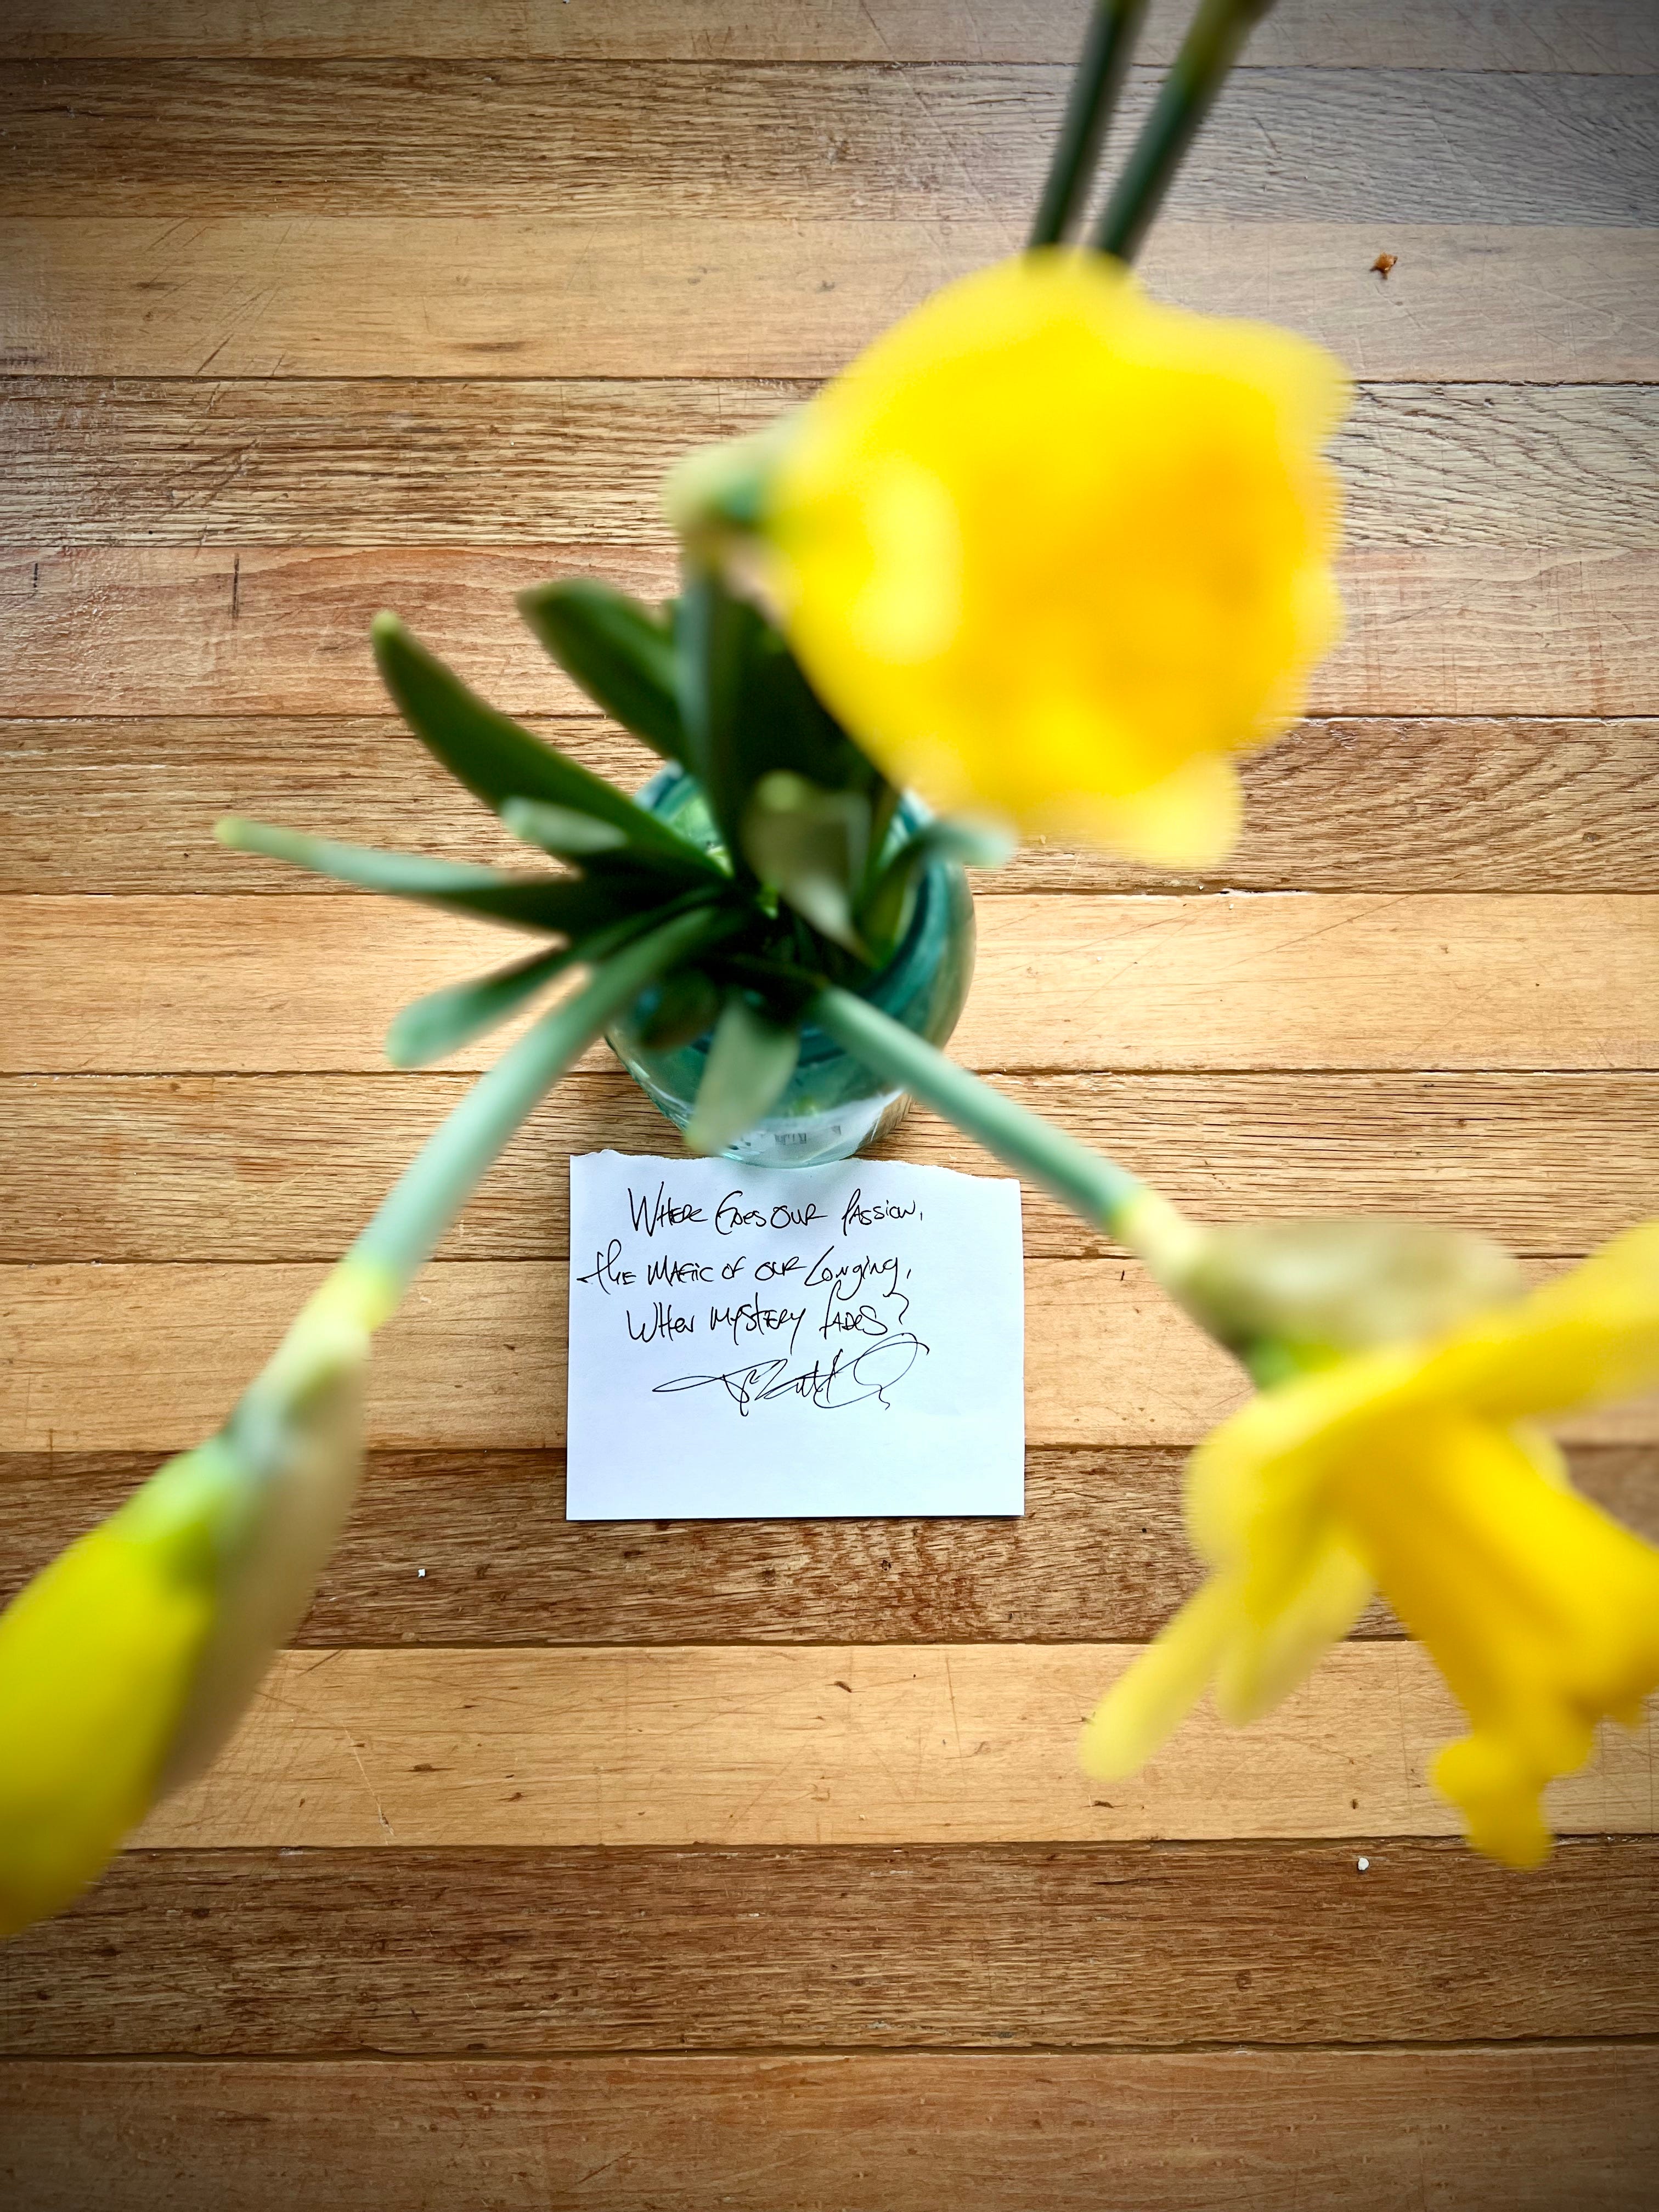 Where Goes our Passion,
the magic of our Longing,
When mystery fades?